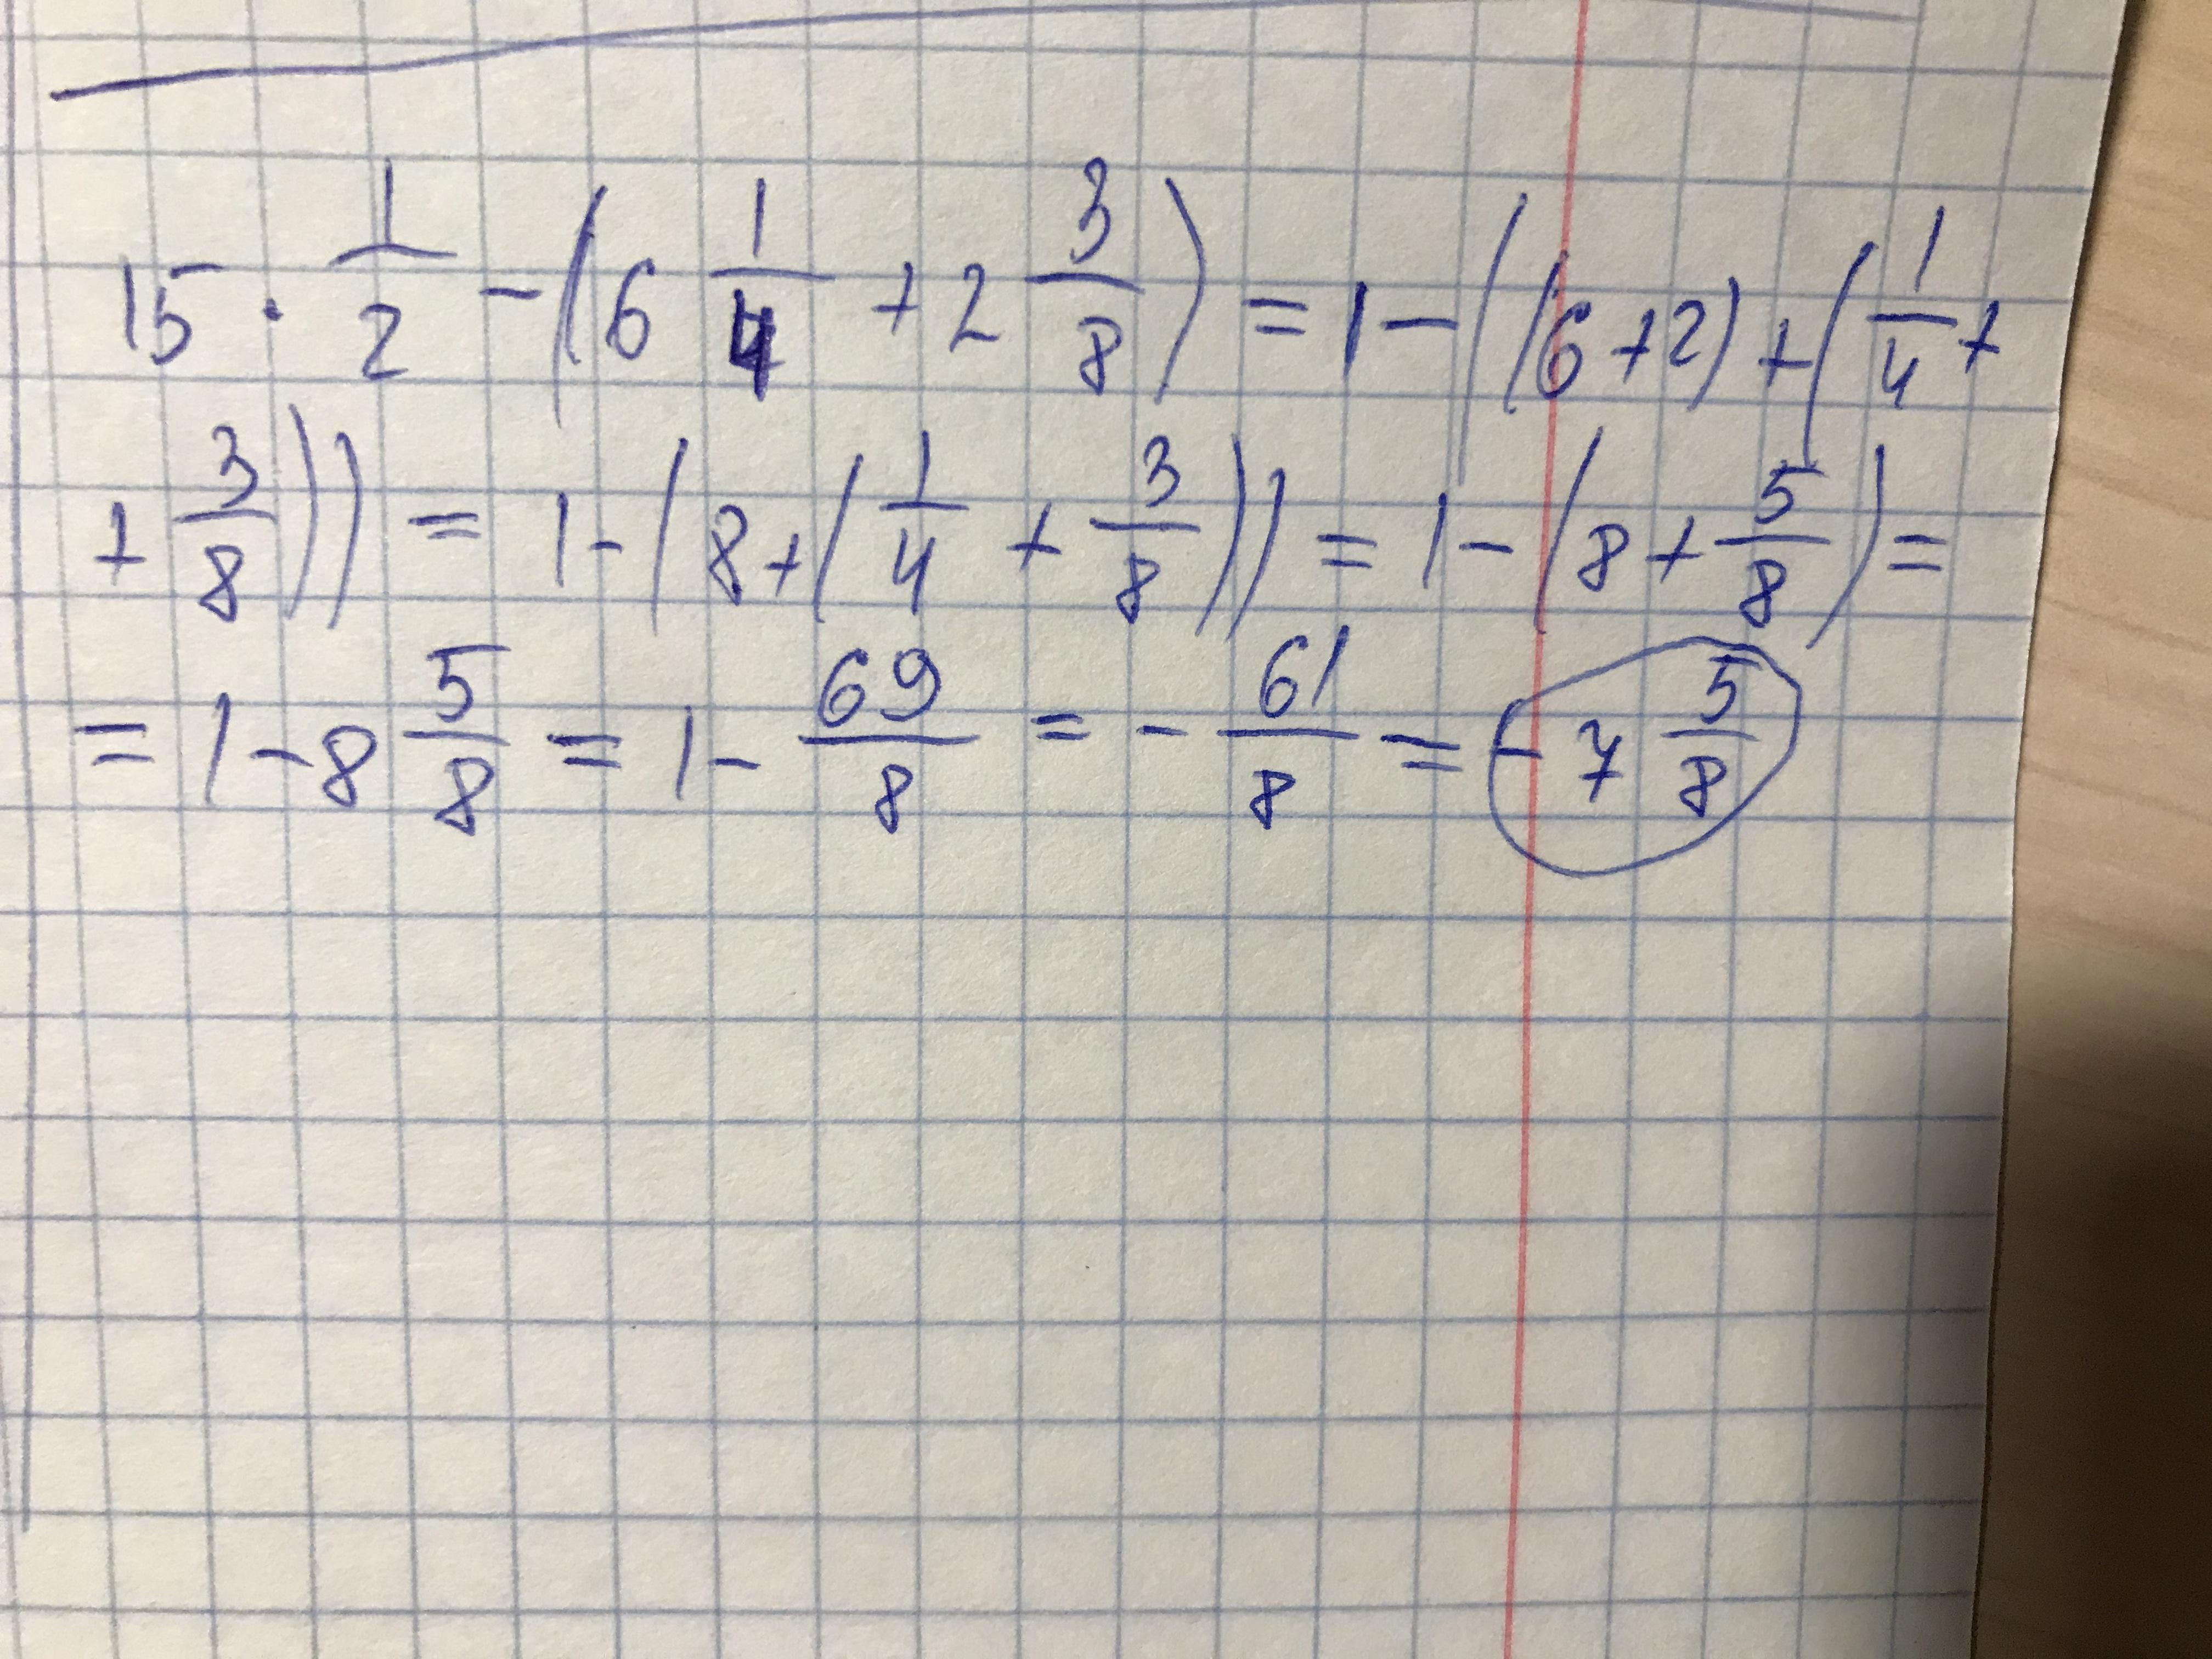 15 · 1/2 - (6 1/4 + 2 3/8) = 1 - ((6 + 2) + (1/4 +
+ 3/8)) = 1 - (8 + (1/4 + 3/8)) = 1 - (8 + 5/8) =
= 1 - 8 5/8 = 1 - 69/8 = - 61/8 = - 7 5/8